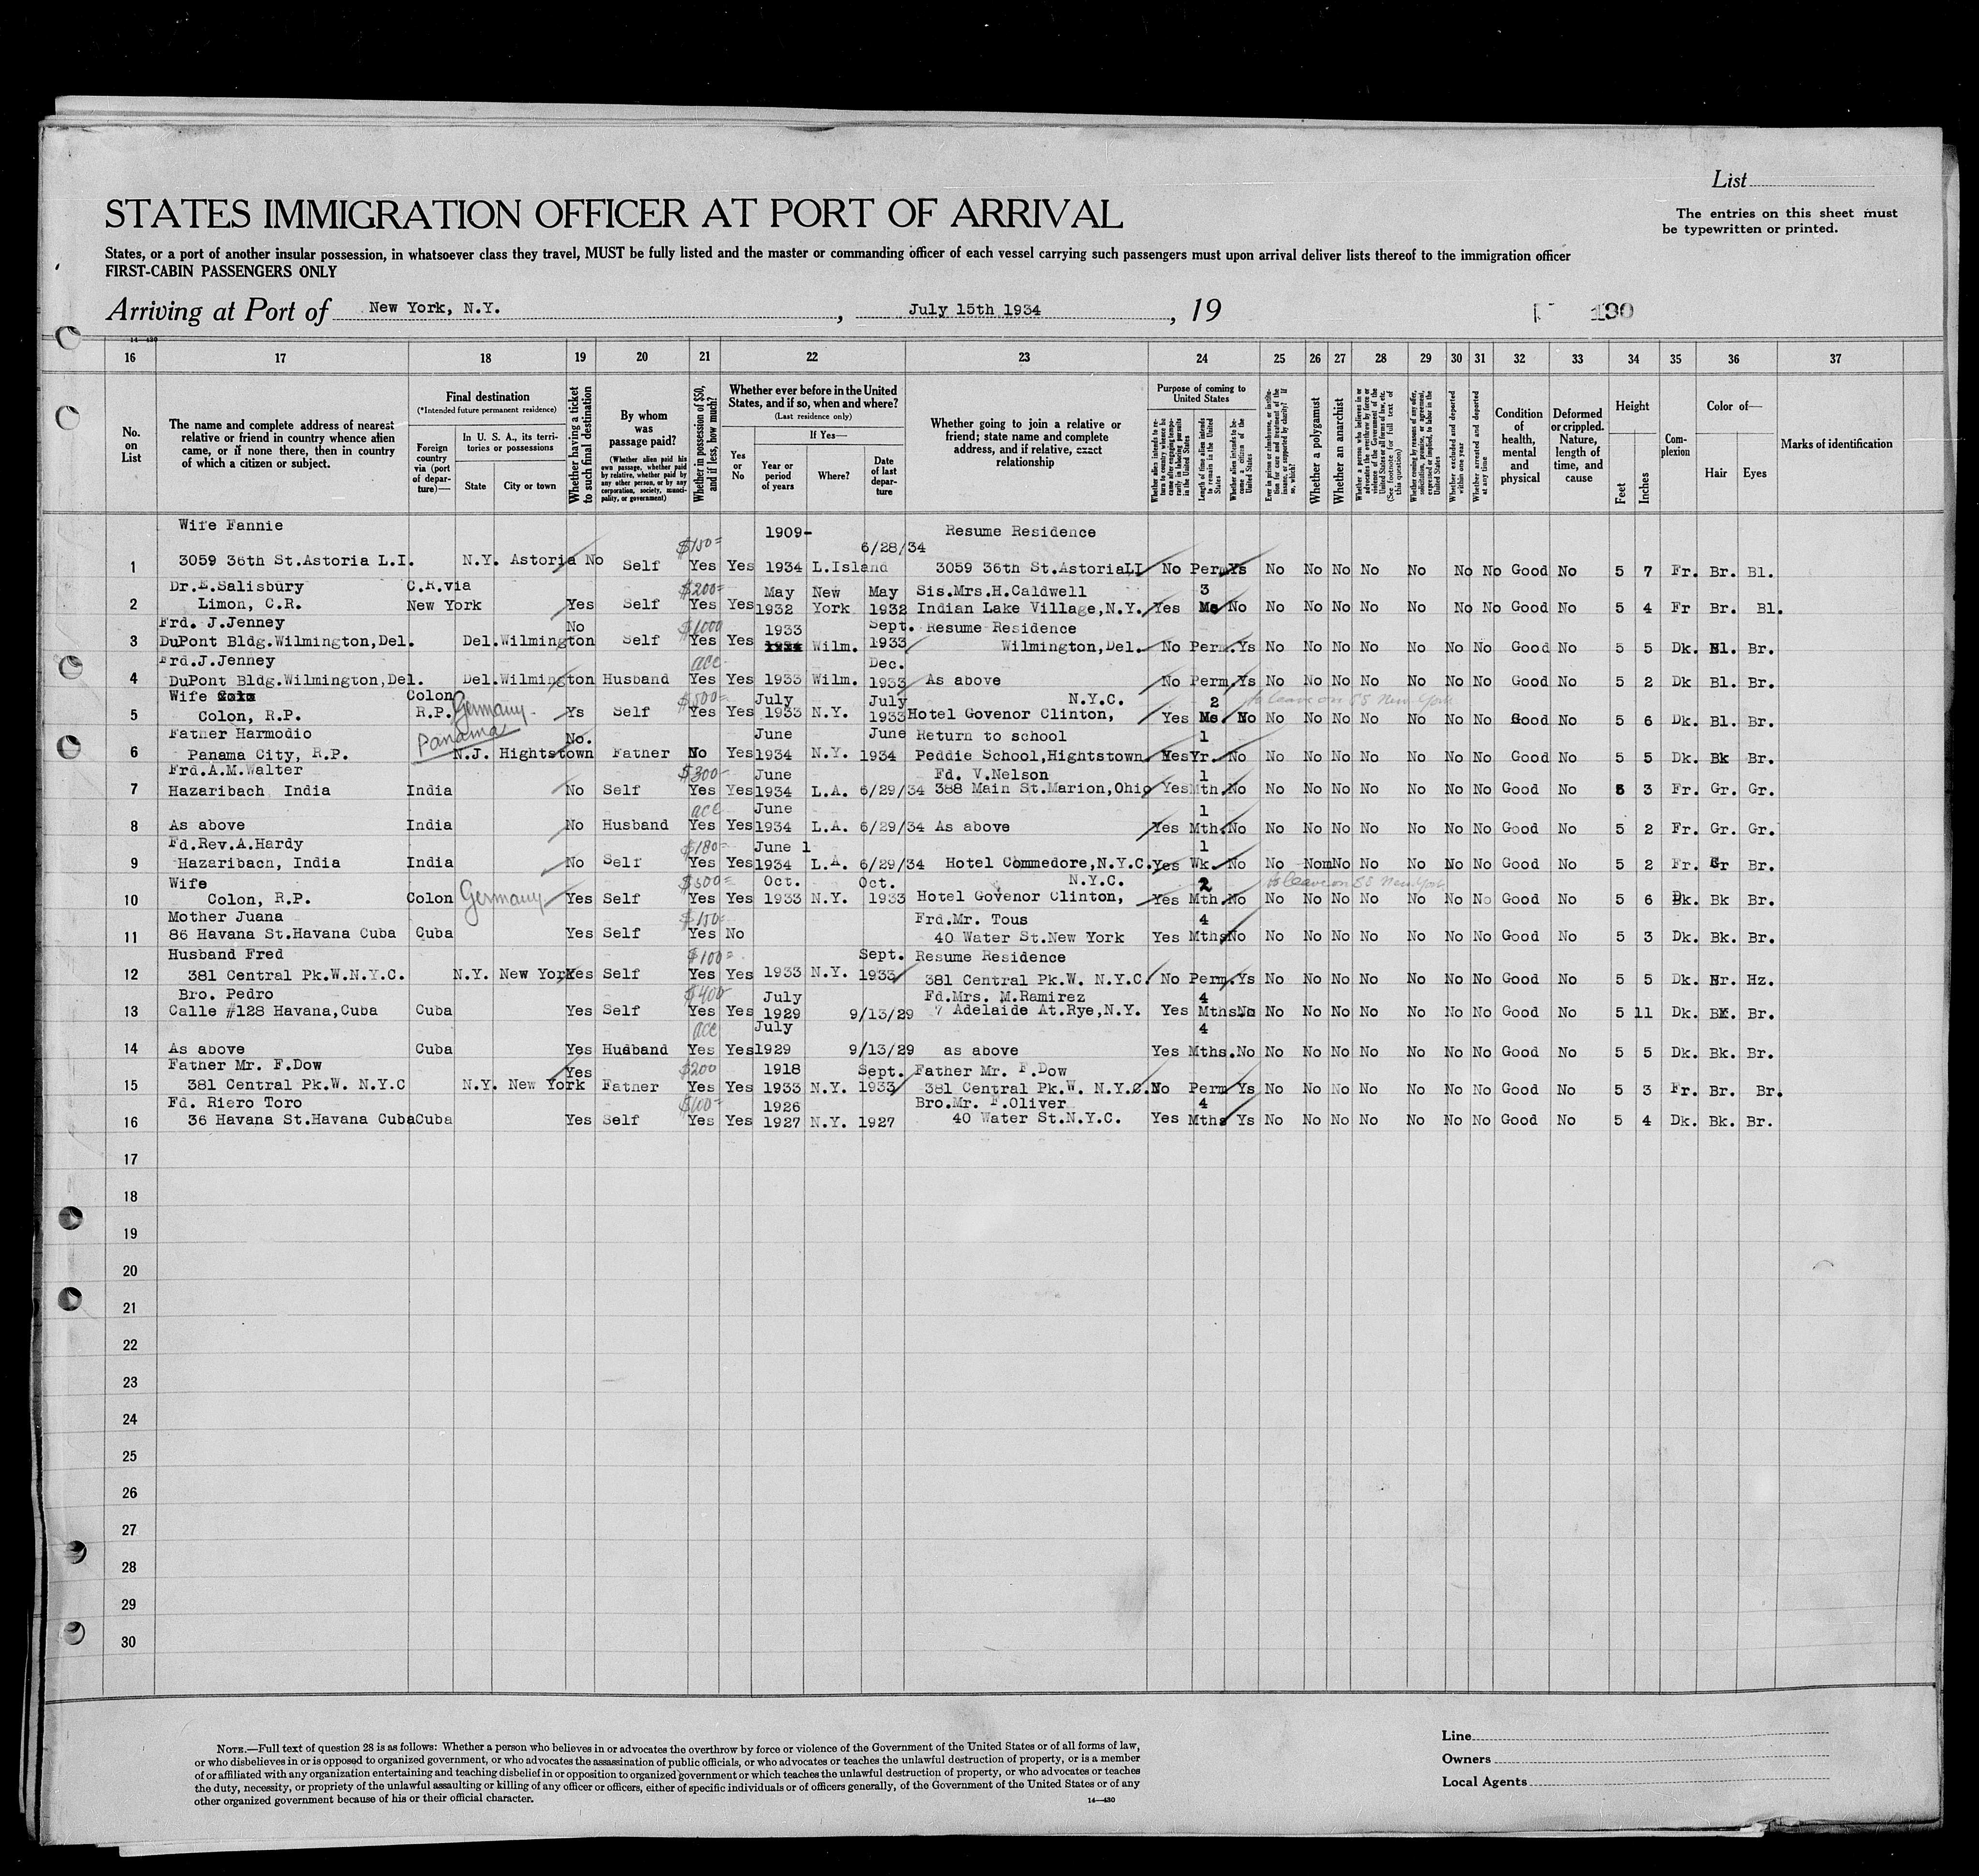 List
STATES IMMIGRATION OFFICER AT PORT OF ARRIVAL
The entries on this sheet must
be typewritten or printed.
States, or a port of another insular possession, in whatsoever class they travel, MUST be fully listed and the master or commanding officer of each vessel carrying such passengers must upon arrival deliver lists thereof to the immigration officer
FIRST-CABIN PASSENGERS ONLY
Arriving at Port of New York, N.Y. , July 15th 1934 , 19 190
14—430
16 17 18 19 20 21 22 23 24 25 26 27 28 29 30 31 32 33 34 35 36 37
No. on List
The name and complete address of nearest relative or friend in country whence alien came, or if none there, then in country of which a citizen or subject.
Final destination
(*Intended future permanent residence)
Foreign country via (port of departure)—
In U. S. A., its territories or possessions
State City or town
Whether having a ticket to such final destination
By whom was passage paid?
(Whether alien paid his own passage, whether paid by relative, whether paid by any other person, or by any corporation, society, municipality, or government)
Whether in possession of $50, and if less, how much?
Whether ever before in the United States, and if so, when and where?
(Last residence only)
Yes or No
If Yes—
Year or period of years
Where?
Date of last departure
Whether going to join a relative or friend; state name and complete address, and if relative, exact relationship
Purpose of coming to United States
Whether alien intends to return to country whence he came after engaging temporarily in laboring pursuits in the United States
Length of time alien intends to remain in the United States
Whether alien intends to become a citizen of the United States
Ever in prison or almshouse, or institution for care and treatment of the insane, or supported by charity? If so, which?
Whether a polygamist
Whether an anarchist
Whether a person who believes in or advocates the overthrow by force or violence of the Government of the United States or all forms of law, etc. (See footnote for full text of this question)
Whether coming by reasons of any offer, solicitation, promise, or agreement, expressed or implied, to labor in the United States
Whether excluded and deported within one year
Whether arrested and deported at any time
Condition of health, mental and physical
Deformed or crippled. Nature, length of time, and cause
Height
Feet Inches
Complexion
Color of—
Hair Eyes
Marks of identification
Wife Fannie 1909- Resume Residence
$150= 6/28/34
1 3059 36th St.Astoria L.I. N.Y. Astoria No Self Yes Yes 1934 L.Island 3059 36th St.AstoriaLI No Perm Ys No No No No No No No Good No 5 7 Fr. Br. Bl.
Dr.E.Salisbury C.R.via $200= May New May Sis.Mrs.H.Caldwell 3
2 Limon, C.R. New York Yes Self Yes Yes 1932 York 1932 Indian Lake Village,N.Y. Yes Mo No No No No No No No No Good No 5 4 Fr Br. Bl.
Frd. J.Jenney No $1000 1933 Sept. Resume Residence
3 DuPont Bldg.Wilmington,Del. Del.Wilmington Self Yes Yes Wilm. 1933 Wilmington,Del. No Perm.Ys No No No No No No No Good No 5 5 Dk. Bl. Br.
Frd.J.Jenney acc Dec.
4 DuPont Bldg.Wilmington,Del. Del.Wilmington Husband Yes Yes 1933 Wilm. 1933 As above No Perm.Ys No No No No No No No Good No 5 2 Dk Bl. Br.
Wife Colon $500= July July N.Y.C. 2 to leave on SS New York
5 Colon, R.P. R.P. Germany Ys Self Yes Yes 1933 N.Y. 1933 Hotel Govenor Clinton, Yes Mo. No No No No No No No No Good No 5 6 Dk. Bl. Br.
Father Harmodio Panama No. June June Return to school 1
6 Panama City, R.P. N.J. Hightstown Father No Yes 1934 N.Y. 1934 Peddie School,Hightstown. Yes Yr. No No No No No No No No Good No 5 5 Dk. Bk Br.
Frd.A.M.Walter $300- June Fd. V.Nelson 1
7 Hazaribach India India No Self Yes Yes 1934 L.A. 6/29/34 388 Main St.Marion,Ohio Yes Mth.No No No No No No No No Good No 5 3 Fr. Gr. Gr.
acc June 1
8 As above India No Husband Yes Yes 1934 L.A. 6/29/34 As above Yes Mth.No No No No No No No No Good No 5 2 Fr. Gr. Gr.
Fd.Rev.A.Hardy $180- June 1 1
9 Hazaribach, India India No Self Yes Yes 1934 L.A. 6/29/34 Hotel Commedore,N.Y.C. Yes Wk. No No Nom No No No No No Good No 5 2 Fr. Gr Br.
Wife $500= Oct. Oct. N.Y.C. 2 to leave on SS New York
10 Colon, R.P. Colon Germany Yes Self Yes Yes 1933 N.Y. 1933 Hotel Govenor Clinton, Yes Mth.No No No No No No No No Good No 5 6 Dk. Bk Br.
Mother Juana $150- Frd.Mr. Tous 4
11 86 Havana St.Havana Cuba Cuba Yes Self Yes No 40 Water St.New York Yes Mths No No No No No No No No Good No 5 3 Dk. Bk. Br.
Husband Fred $100= Sept. Resume Residence
12 381 Central Pk.W.N.Y.C. N.Y. New York Yes Self Yes Yes 1933 N.Y. 1933 381 Central Pk.W. N.Y.C. No Perm.Ys No No No No No No No Good No 5 5 Dk. Br. Hz.
Bro. Pedro $400- July Fd.Mrs. M.Ramirez 4
13 Calle #128 Havana,Cuba Cuba Yes Self Yes Yes 1929 9/13/29 7 Adelaide At.Rye,N.Y. Yes Mths No No No No No No No No Good No 5 11 Dk. BK. Br.
acc July 4
14 As above Cuba Yes Husband Yes Yes 1929 9/13/29 as above Yes Mths.No No No No No No No No Good No 5 5 Dk. Bk. Br.
Father Mr. F.Dow Yes $200 1918 Sept. Father Mr. F.Dow
15 381 Central Pk.W. N.Y.C N.Y. New York Father Yes Yes 1933 N.Y. 1933 381 Central Pk.W. N.Y.C. No Perm Ys No No No No No No No Good No 5 3 Fr. Br. Br.
Fd. Riero Toro $100= 1926 Bro.Mr. F.Oliver 4
16 36 Havana St.Havana Cuba Cuba Yes Self Yes Yes 1927 N.Y. 1927 40 Water St.N.Y.C. Yes Mths Ys No No No No No No No Good No 5 4 Dk. Bk. Br.
17
18
19
20
21
22
23
24
25
26
27
28
29
30
NOTE.—Full text of question 28 is as follows: Whether a person who believes in or advocates the overthrow by force or violence of the Government of the United States or of all forms of law,
or who disbelieves in or is opposed to organized government, or who advocates the assassination of public officials, or who advocates or teaches the unlawful destruction of property, or is a member
of or affiliated with any organization entertaining and teaching disbelief in or opposition to organized government or which teaches the unlawful destruction of property, or who advocates or teaches
the duty, necessity, or propriety of the unlawful assaulting or killing of any officer or officers, either of specific individuals or of officers generally, of the Government of the United States or of any
other organized government because of his or their official character.
14—430
Line
Owners
Local Agents